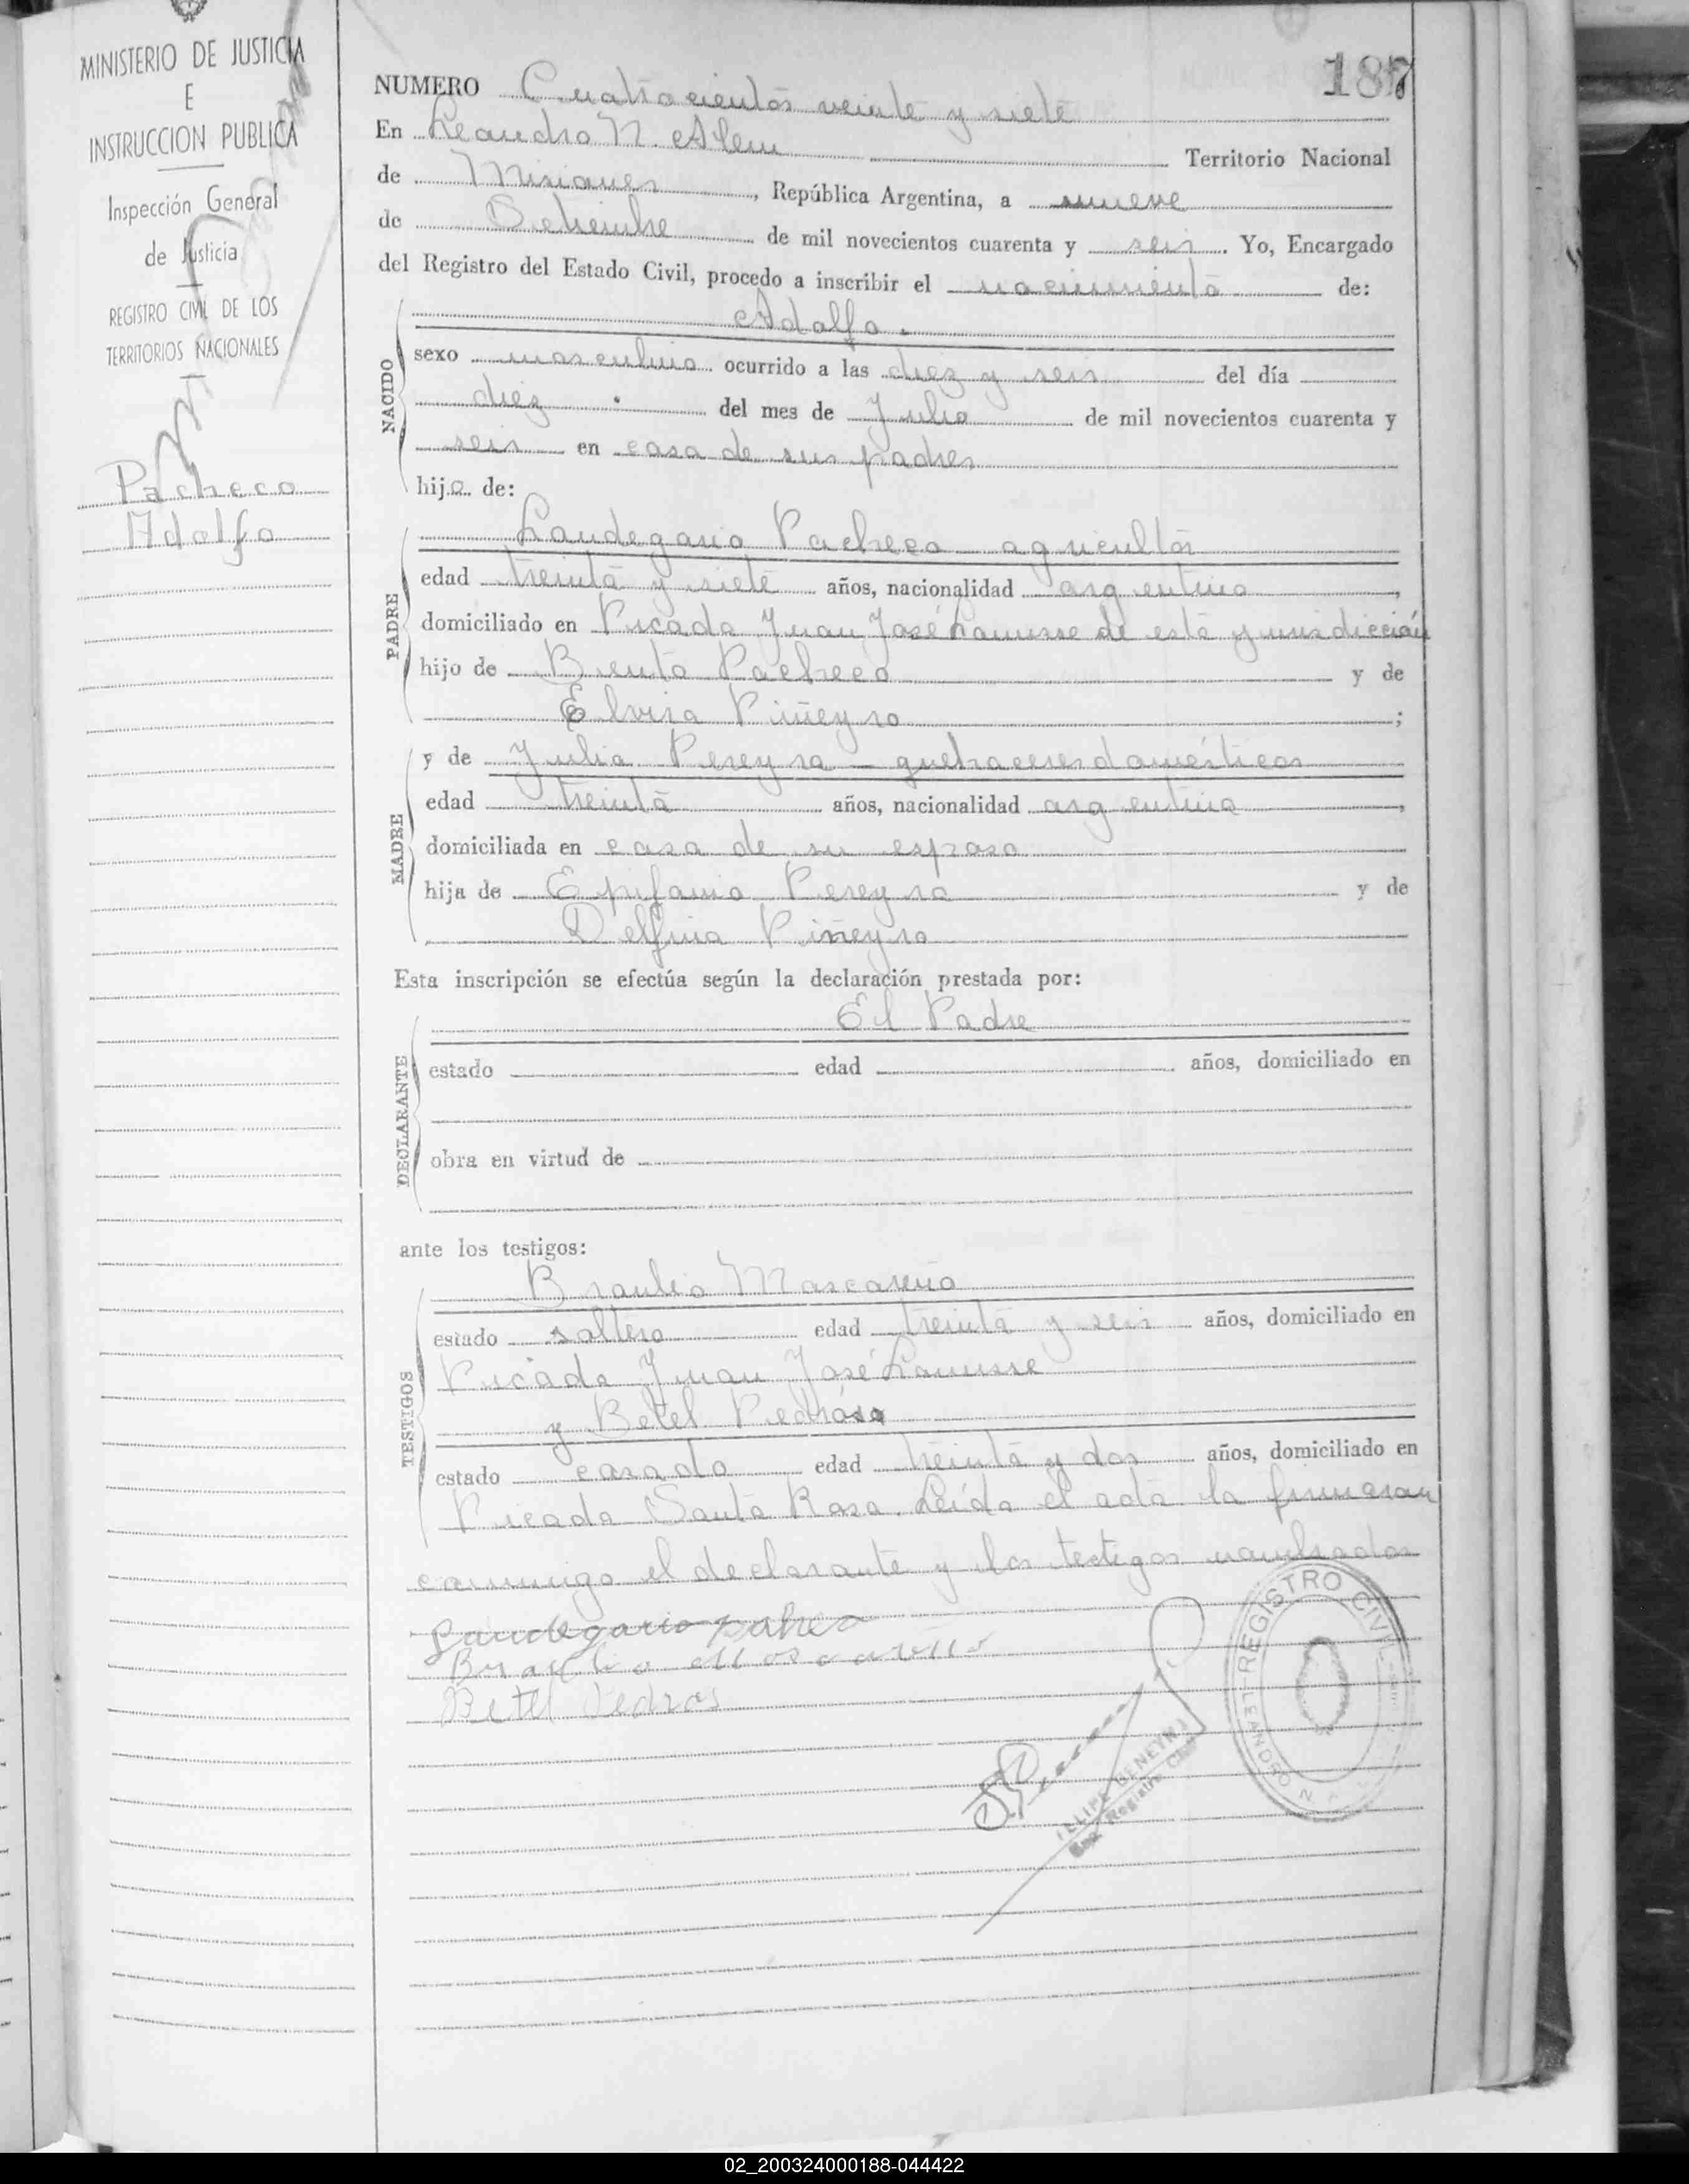 MINISTERIO DE JUSTICIA
E
INSTRUCCION PUBLICA
Inspección General
de Justicia
REGISTRO CIVIL DE LOS
TERRITORIOS NACIONALES
Pacheco
Adolfo
187
NUMERO Cuatrocientos veinte y siete
En Leandro N. Alem Territorio Nacional
de Misiones, República Argentina, a nueve
de Setiembre de mil novecientos cuarenta y seis. Yo, Encargado
del Registro del Estado Civil, procedo a inscribir el nacimiento de:
Adolfo.
NACIDO
sexo masculino ocurrido a las diez y seis del día
diez del mes de Julio de mil novecientos cuarenta y
seis en casa de sus padres
hijo de:
PADRE
Laudegario Pacheco agricultor
edad treinta y siete años, nacionalidad argentino,
domiciliado en Picada Juan José Lanusse de esta jurisdicción
hijo de Bento Pacheco y de
Elvira Piñeyro;
MADRE
y de Julia Pereyra - quehaceres domésticos
edad treinta años, nacionalidad argentina,
domiciliada en casa de su esposo
hija de Epifanio Pereyra y de
Delfina Piñeyro
Esta inscripción se efectúa según la declaración prestada por:
DECLARANTE
El Padre
estado edad años, domiciliado en
obra en virtud de
ante los testigos:
TESTIGOS
Braulio Mascareño
estado soltero edad treinta y seis años, domiciliado en
Picada Juan José Lanusse
y Betel Pedroso
estado casado edad treinta y dos años, domiciliado en
Picada Santa Rosa. Leída el acta la firmaran
conmigo el declarante y los testigos nombrados
Laudegario
Braulio
Betel Pedros
REGISTRO CIVIL
LEANDRO N.
Registro Civil
02_200324000188-044422